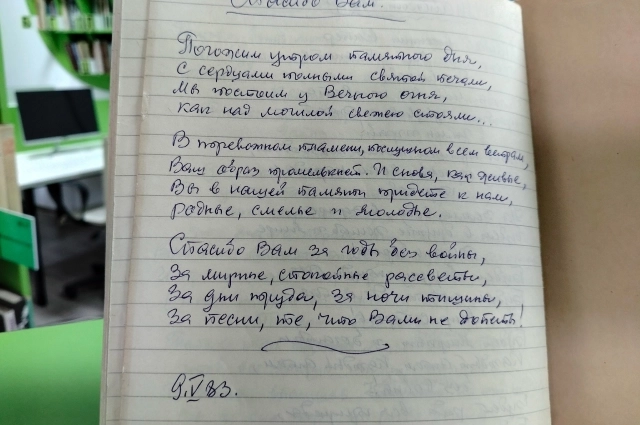 Спасибо Вам.
Погожим утром памятного дня,
С сердцами полными святой печали,
Мы постоим у Вечного огня,
как над могилой свежею стояли...
В тревожном пламени, послушном всем ветрам,
Ваш образ промелькнёт. И снова, как живые,
Вы в нашей памяти придёте к нам,
родные, смелые и молодые.
Спасибо Вам за годы без войны,
За мирные, спокойные рассветы,
За дни труда, за ночи тишины,
За песни, те, что Вами не допеты!
9.V 83.